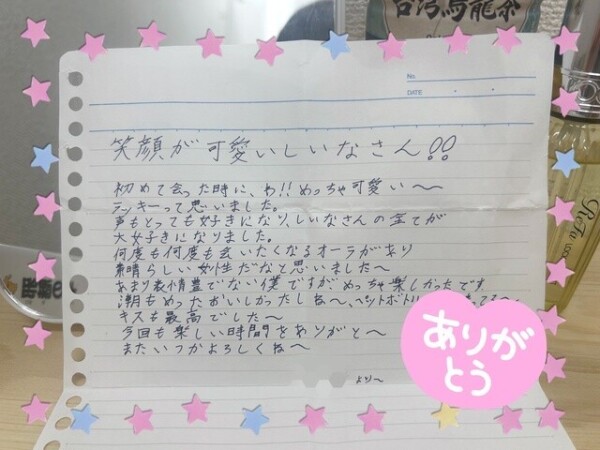 台湾烏龍茶
No.
DATE
笑顔が可愛いしいなさん!!
初めて会った時に、わ!!めっちゃ可愛い〜
ラッキーって思いました。
声もとっても好きになり、しいなさんの全てが
大好きになりました。
何度も何度も会いたくなるオーラがあり
素晴らしい女性だなと思いました〜
あまり表情豊でない僕ですがめっちゃ楽しかったです
潮もめったおいしかったしね〜、ペットボトル
キスも最高でした〜
今回も楽しい時間をありがと〜
またいつかよろしくね〜
より〜
ありがとう
ReFa